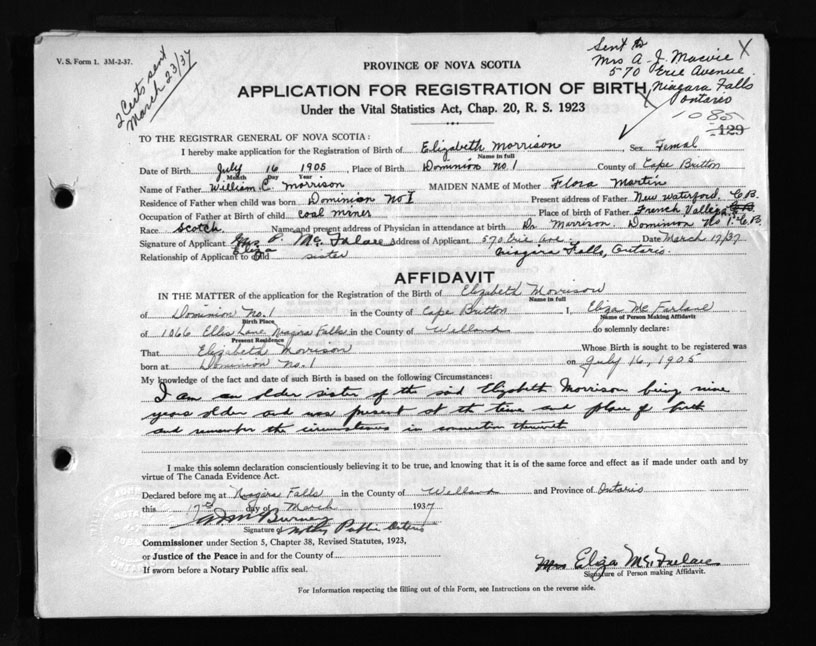 V. S. Form 1. 3M-2-37.
2 Certs sent
March 23/37
Sent to
Mrs A. J. Macvie X
570 Erie Avenue
Niagara Falls
Ontario
1085
129
PROVINCE OF NOVA SCOTIA
APPLICATION FOR REGISTRATION OF BIRTH
Under the Vital Statistics Act, Chap. 20, R. S. 1923
TO THE REGISTRAR GENERAL OF NOVA SCOTIA:
I hereby make application for the Registration of Birth of Elizabeth Morrison Sex Femal
Name in full
Date of Birth July 16 1905, Place of Birth Dominion No. 1 County of Cape Britton
Month Day Year
Name of Father William C. Morrison MAIDEN NAME of Mother Flora Martin
Residence of Father when child was born Dominion No I Present address of Father New waterford. C.B.
Occupation of Father at Birth of child coal miner Place of birth of Father French Valley
Race Scotch. Name and present address of Physician in attendance at birth Dr Morrison, Dominion No 1. C.B.
Signature of Applicant Address of Applicant 570 Erie Ave. Date March 17/37
Eliza Niagara Falls, Ontario.
Relationship of Applicant to child sister
AFFIDAVIT
IN THE MATTER of the application for the Registration of the Birth of Elizabeth Morrison
Name in full
of Dominion No. 1 in the County of Cape Britton I, Eliza Mc Farlane
Birth Place Name of Person Making Affidavit
of 1066 Ellis Lane, Niagara Falls in the County of Welland do solemnly declare:
Present Residence
That Elizabeth Morrison Whose Birth is sought to be registered was
born at Dominion No. 1 on July 16, 1905
My knowledge of the fact and date of such Birth is based on the following Circumstances:
I am an older sister of the said Elizabeth Morrison being nine
years older and was present at the time and place of birth
and remember the circumstances in connection therewith
I make this solemn declaration conscientiously believing it to be true, and knowing that it is of the same force and effect as if made under oath and by
virtue of The Canada Evidence Act.
Declared before me at Niagara Falls in the County of Welland and Province of Ontario
this 17th day of March 1937
Signature of Notary Public Ontario
Commissioner under Section 5, Chapter 38, Revised Statutes, 1923,
or Justice of the Peace in and for the County of
If sworn before a Notary Public affix seal.
Mrs Eliza
Signature of Person making Affidavit.
For Information respecting the filling out of this Form, see Instructions on the reverse side.